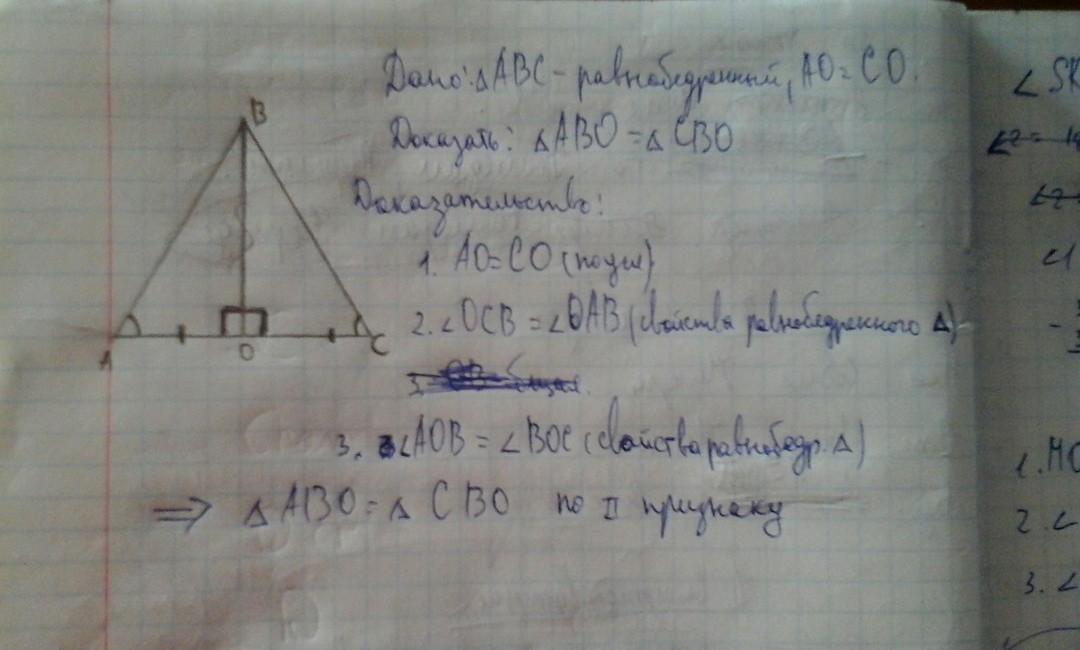 B
A
O
C
Дано: △ABC - равнобедренный, AO = CO.
Доказать: △ABO = △CBO
Доказательство:
1. AO = CO (по усл)
2. ∠OCB = ∠OAB (свойства равнобедренного △)
3. ∠AOB = ∠BOC (свойства равнобедр. △)
⇒ △ABO = △CBO по II признаку
∠ SK
1. MO
2. ∠
3. ∠